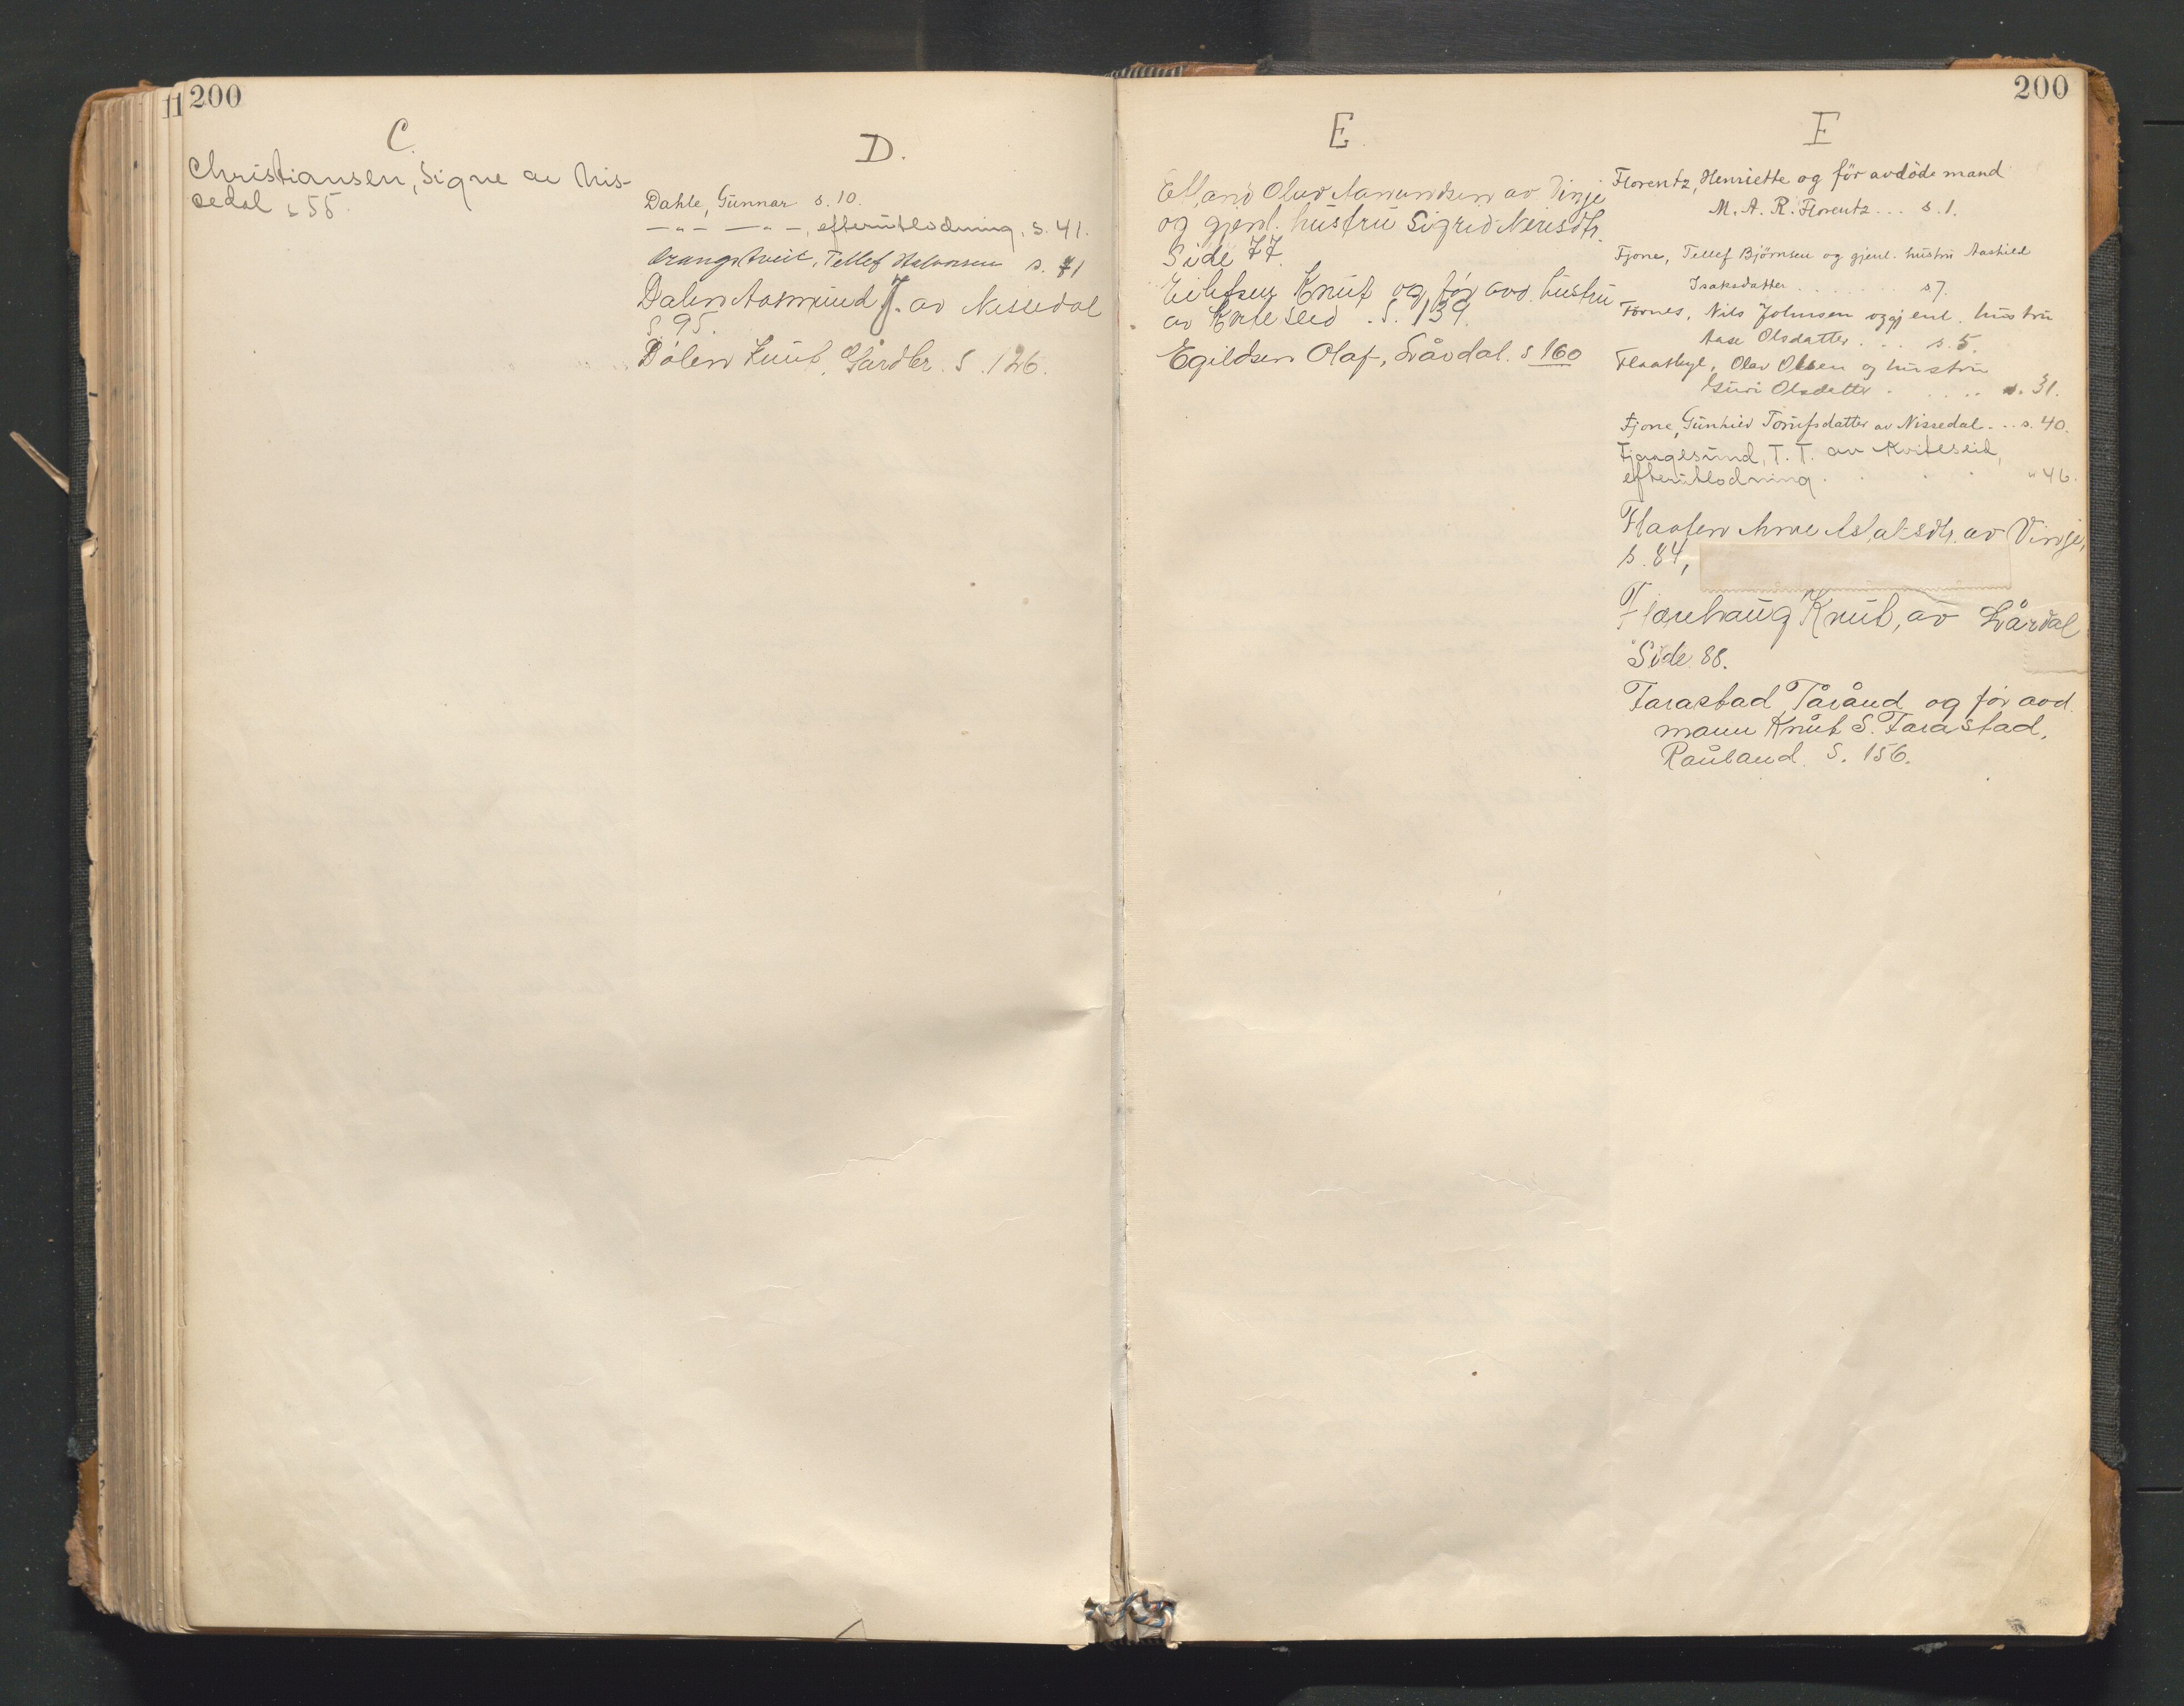 200
C.
Christiansen, Signe av Nis-
sedal s 55.
D.
Dahle, Gunnar s. 10.
— " — — " —, efterutlodning, s. 41.
Drangstveit, Tellef Halvorsen s. 71
Dalen Aasmund J. av Nissedal
S. 95.
Dalen Knut, Gårdbr. S. 126.
200
E.
Olav Aamundsen av Vinje
og gjenl. hustru Sigrid Nerisdtr.
Side 77.
Eilefsen Knut og før avd. hustru
av Kviteseid. S. 139.
Egildsen Olaf, Lårdal. s 160
F
Florentz, Henriette og før avdöde mand
M. A. R. Florentz... s. 1.
Fjone, Tellef Björnsen og gjenl. hustru Aashild
Isaksdatter...... s 7.
Fornes, Nils Johnsen og gjenl. hustru
Aase Olsdatter... s. 5.
Flaatbyl, Olav Olsen og hustru
Guri Olsdatter..... s. 31.
Fjone, Gunhild Tonifsdatter av Nissedal... s. 40.
Fjaagesund, T. T. av Kviteseid,
efterutlodning.... " 46.
Flaaten Anne Aslaksdtr. av Vinje,
s. 84,
Knut, av Lårdal
Side 88.
Farastad Tårånd og før avd.
mann Knut S. Farastad,
Rauland. S. 156.